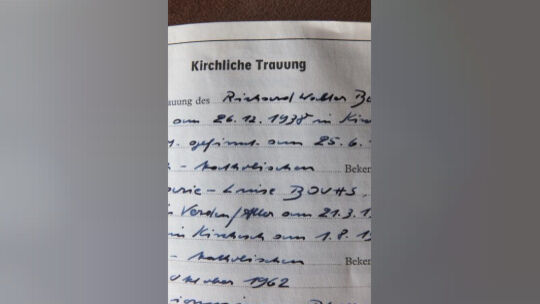 Kirchliche Trauung
auung des Richard Walter B
am 26.12.1938 in Kir
. gefirmt am 25.6.
- katholischen Beken
arie-Luise BOUHS,
Verden/Aller am 21.3.1
in Kirchesch am 1.8.1
- katholischen Beken
Oktober 1962